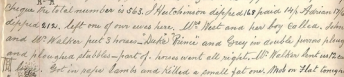 The total number is 363. J Hutchinson dipped 168 paid 14/- Adrian
dipped 812, left one of our ewes here. Mrs West and her boy called. John
and Mr Walker put 3 horses "Duke" Prince and Grey in double furrow plough
and ploughed stubbles - part of. horses went all right. Mr Walker lent us 12
Got in paper lambs and killed a small fat one. Mob on Flat